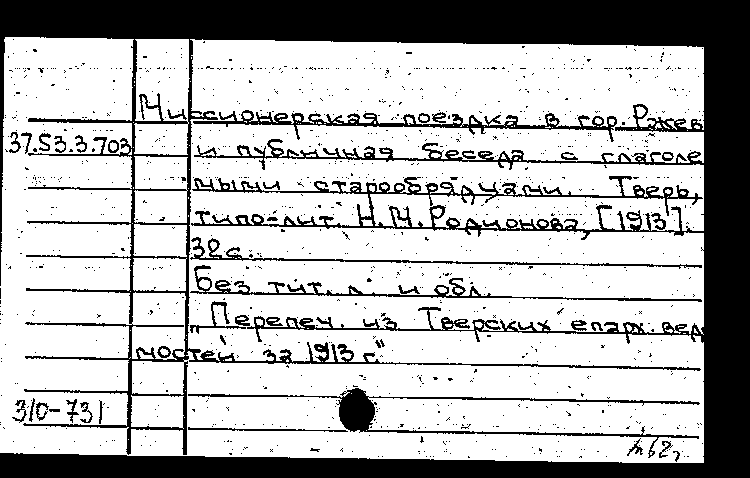 Миссионерская поездка в гор. Ржев
37.53.3.703 и публичная беседа с глаголе
мыми старообрядцами. Тверь,
типо-лит. Н.М. Родионова, [1913].
32с.
Без тит. л. и обл.
"Перепеч. из Тверских епарх. вед
мостей за 1913 г."
310-731